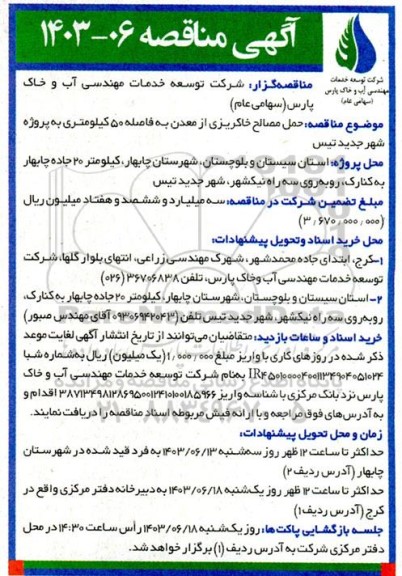 آگهی مناقصه ۰۶-۱۴۰۳
شرکت توسعه خدمات
مهندسی آب و خاک پارس
(سهامی عام)
مناقصه‌گزار: شرکت توسعه خدمات مهندسی آب و خاک
پارس(سهامی‌عام)
موضوع مناقصه:حمل مصالح خاکریزی از معدن به فاصله ۵۰ کیلومتری به پروژه
شهر جدید تیس
محل پروژه: استان سیستان و بلوچستان، شهرستان چابهار، کیلومتر ۲۰ جاده چابهار
به کنارک، روبه‌روی سه راه نیکشهر، شهر جدید تیس
مبلغ تضمین شرکت در مناقصه: سه میلیارد و ششصد و هفتاد میلیون ریال
(۳,۶۷۰,۰۰۰,۰۰۰)
محل خرید اسناد و تحویل پیشنهادات:
۱-کرج، ابتدای جاده محمدشهر، شهرک مهندسی زراعی، انتهای بلوار گلها، شرکت
توسعه خدمات مهندسی آب وخاک پارس، تلفن ۳۶۷۰۶۸۳۸ (۰۲۶)
۲- استان سیستان و بلوچستان، شهرستان چابهار، کیلومتر ۲۰ جاده چابهار به کنارک،
روبه‌روی سه راه نیکشهر، شهر جدید تیس تلفن (۰۹۳۰۶۹۴۲۰۴۳ آقای مهندس صبور)
خرید اسناد و ساعات بازدید: متقاضیان می‌توانند از تاریخ انتشار آگهی لغایت موعد
ذکر شده در روزهای کاری با واریز مبلغ ۱,۰۰۰,۰۰۰ (یک میلیون) ریال به‌شماره شبا
به‌نام شرکت توسعه خدمات مهندسی آب و خاک
پارس نزد بانک مرکزی با شناسه واریز اقدام و
به آدرس‌های فوق مراجعه و با ارائه فیش مربوطه اسناد مناقصه را دریافت نمایند.
زمان و محل تحویل پیشنهادات:
حداکثر تا ساعت ۱۲ ظهر روز سه‌شنبه ۱۴۰۳/۰۶/۱۳ به فرد قید شده در شهرستان
چابهار (آدرس ردیف ۲)
حداکثر تا ساعت ۱۲ ظهر روز یک‌شنبه ۱۴۰۳/۰۶/۱۸ به دبیرخانه دفتر مرکزی واقع در
کرج (آدرس ردیف۱)
جلسه بازگشایی پاکت‌ها: روز یک‌شنبه ۱۴۰۳/۰۶/۱۸ رأس ساعت ۱۴:۳۰ در محل
دفتر مرکزی شرکت به آدرس ردیف (۱) برگزار خواهد شد.